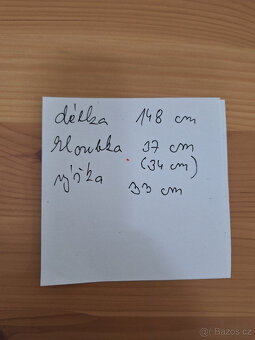 délka 148 cm
hloubka 37 cm
(34 cm)
výška 33 cm
Bazos.cz